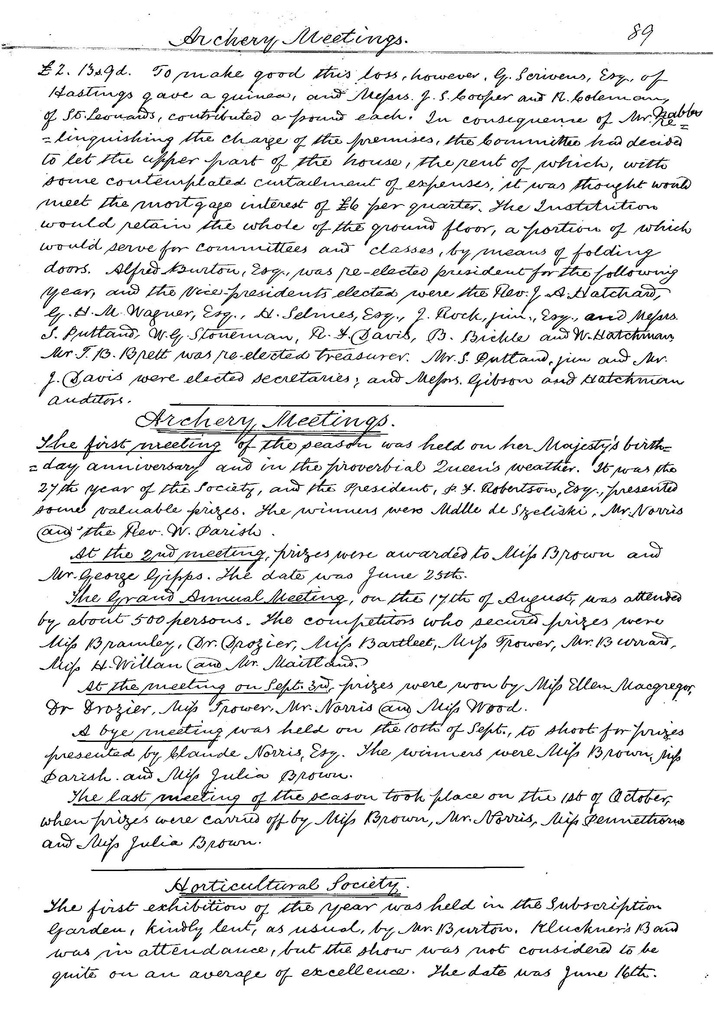 Archery Meetings. 89
£2. 13s9d. To make good this loss, however, G. Scrivens, Esq, of
Hastings gave a guinea, and Messrs. J. S. Cooper and R. Coleman,
of St. Leonards, contributed a pound each. In consequence of Mr.
=linquishing the charge of the premises, the Committee had decided
to let the upper part of the house, the rent of which, with
some contemplated curtailment of expenses, it was thought would
meet the mortgage interest of £6 per quarter. The Institution
would retain the whole of the ground floor, a portion of which
would serve for committees and classes, by means of folding
doors. Alfred Burton, Esq., was re-elected president for the following
year, and the Vice-presidents elected were the Rev. J. A. Hatchard,
G. H. M. Wagner, Esq., H. Selmes, Esq., J. Rock, jun., Esq., and Messrs
S. Putland, W. G. Stoneman, R. F. Davis, B. Bickle and W. Hatchman,
Mr T. B. Brett was re-elected treasurer. Mr. S. Putland, jun and Mr.
J. Davis were elected secretaries; and Messrs. Gibson and Hatchman
auditors.
Archery Meetings.
The first meeting of the season was held on her Majesty's birth=
=day anniversary and in the proverbial Queen's weather. It was the
27th year of the Society, and the President, Robertson, Esq., presented
some valuable prizes. The winners were Mdlle de Szeliski, Mr. Norris
and the Rev. W. Parish.
At the 2nd meeting, prizes were awarded to Miss Brown and
Mr. George Gipps. The date was June 25th.
The Grand Annual Meeting, on the 17th of August, was attended
by about 500 persons. The competitors who secured prizes were
Miss Bramley, Dr. Drozier, Miss Bartleet, Miss Trower, Mr. Burrard,
Miss H. Willan and Mr. Maitland.
At the meeting on Sept. 3rd, prizes were won by Miss Ellen Macgregor,
Dr Drozier, Miss Trower, Mr. Norris and Miss Wood.
A bye meeting was held on the 10th of Sept., to shoot for prizes
presented by Claude Norris, Esq. The winners were Miss Brown, Miss
Parish and Miss Julia Brown.
The last meeting of the season took place on the 1st of October,
when prizes were carried off by Miss Brown, Mr. Norris, Miss Pennethorne
and Miss Julia Brown.
Horticultural Society.
The first exhibition of the year was held in the Subscription
Garden, kindly lent, as usual, by Mr. Burton. Kluckner's Band
was in attendance, but the show was not considered to be
quite on an average of excellence. The date was June 16th.